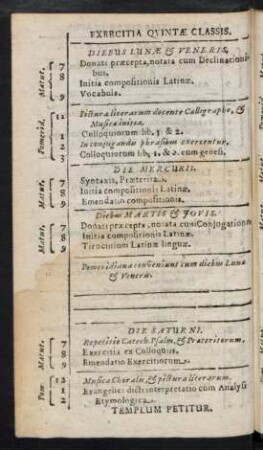 EXERCITIA QVINTÆ CLASSIS.
DIEBUS LUNÆ & VENERIS.
Matut.
7 Donati præcepta, notata cum Declinationi-
bus.
8 Initia compositionis Latinæ.
9 Vocabula.
Pomerid.
11 Pictura literarum docente Calligrapho, &
Musica initia.
1 Colloquiorum lib. 1 & 2.
2 In conjugandis phrasibus exercentur.
3 Colloquiorum lib. 1. & 2. cum genesi.
DIE MERCURII.
Matut.
7 Syntaxis, Præterita.
8 Initia compositionis Latinæ.
9 Emendatio compositionis.
Diebus MARTIS & JOVIS.
Matut.
7 Donati præcepta, notata cum Conjugationib.
8 Initia compositionis Latinæ.
9 Tirocinium Latinæ linguæ.
Pomeridiana conveniunt cum diebus Lunæ
& Veneris.
DIE SATURNI.
Matut.
7 Repetitio Catech. Psalm. & Præteritorum.
8 Exercitia ex Colloquiis.
9 Emendatio Exercitiorum.
Pom
12 Musica Choralis, & pictura literarum.
1 Evangelici dicti interpretatio cum Analysi
2 Etymologica.
TEMPLUM PETITUR.